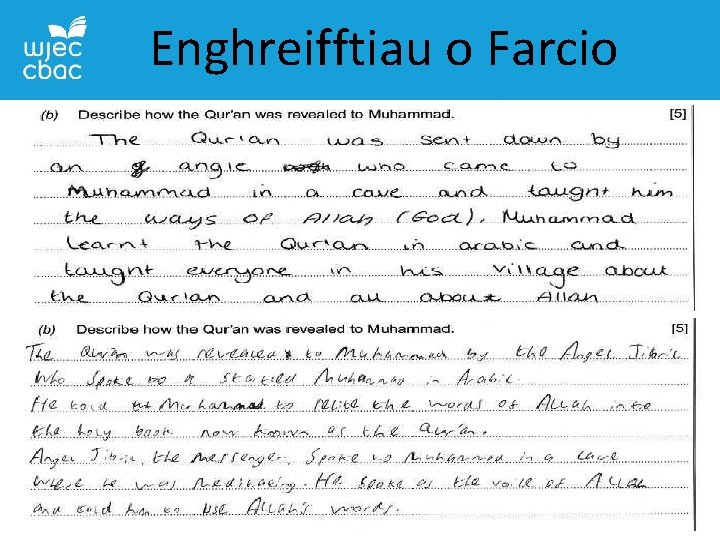 wjec
cbac
Enghreifftiau o Farcio
(b) Describe how the Qur'an was revealed to Muhammad. [5]
The Qur'an was sent down by
an angle who came to
Muhammad in a cave and taught him
the ways of Allah (God). Muhammad
learnt the Qur'an in arabic and
taught everyone in his village about
the Qur'an and all about Allah
(b) Describe how the Qur'an was revealed to Muhammad. [5]
The Qur'an was revealed to Muhammad by the Angel Jibril
who spoke to a Muhammad in Arabic.
He told Muhammad to the words of Allah into
the holy book now known as the Qur'an.
Angel Jibril, the messenger, spoke to Muhammad in a cave
where he was meditating. He spoke as the voice of Allah
and told him to use Allah's words.